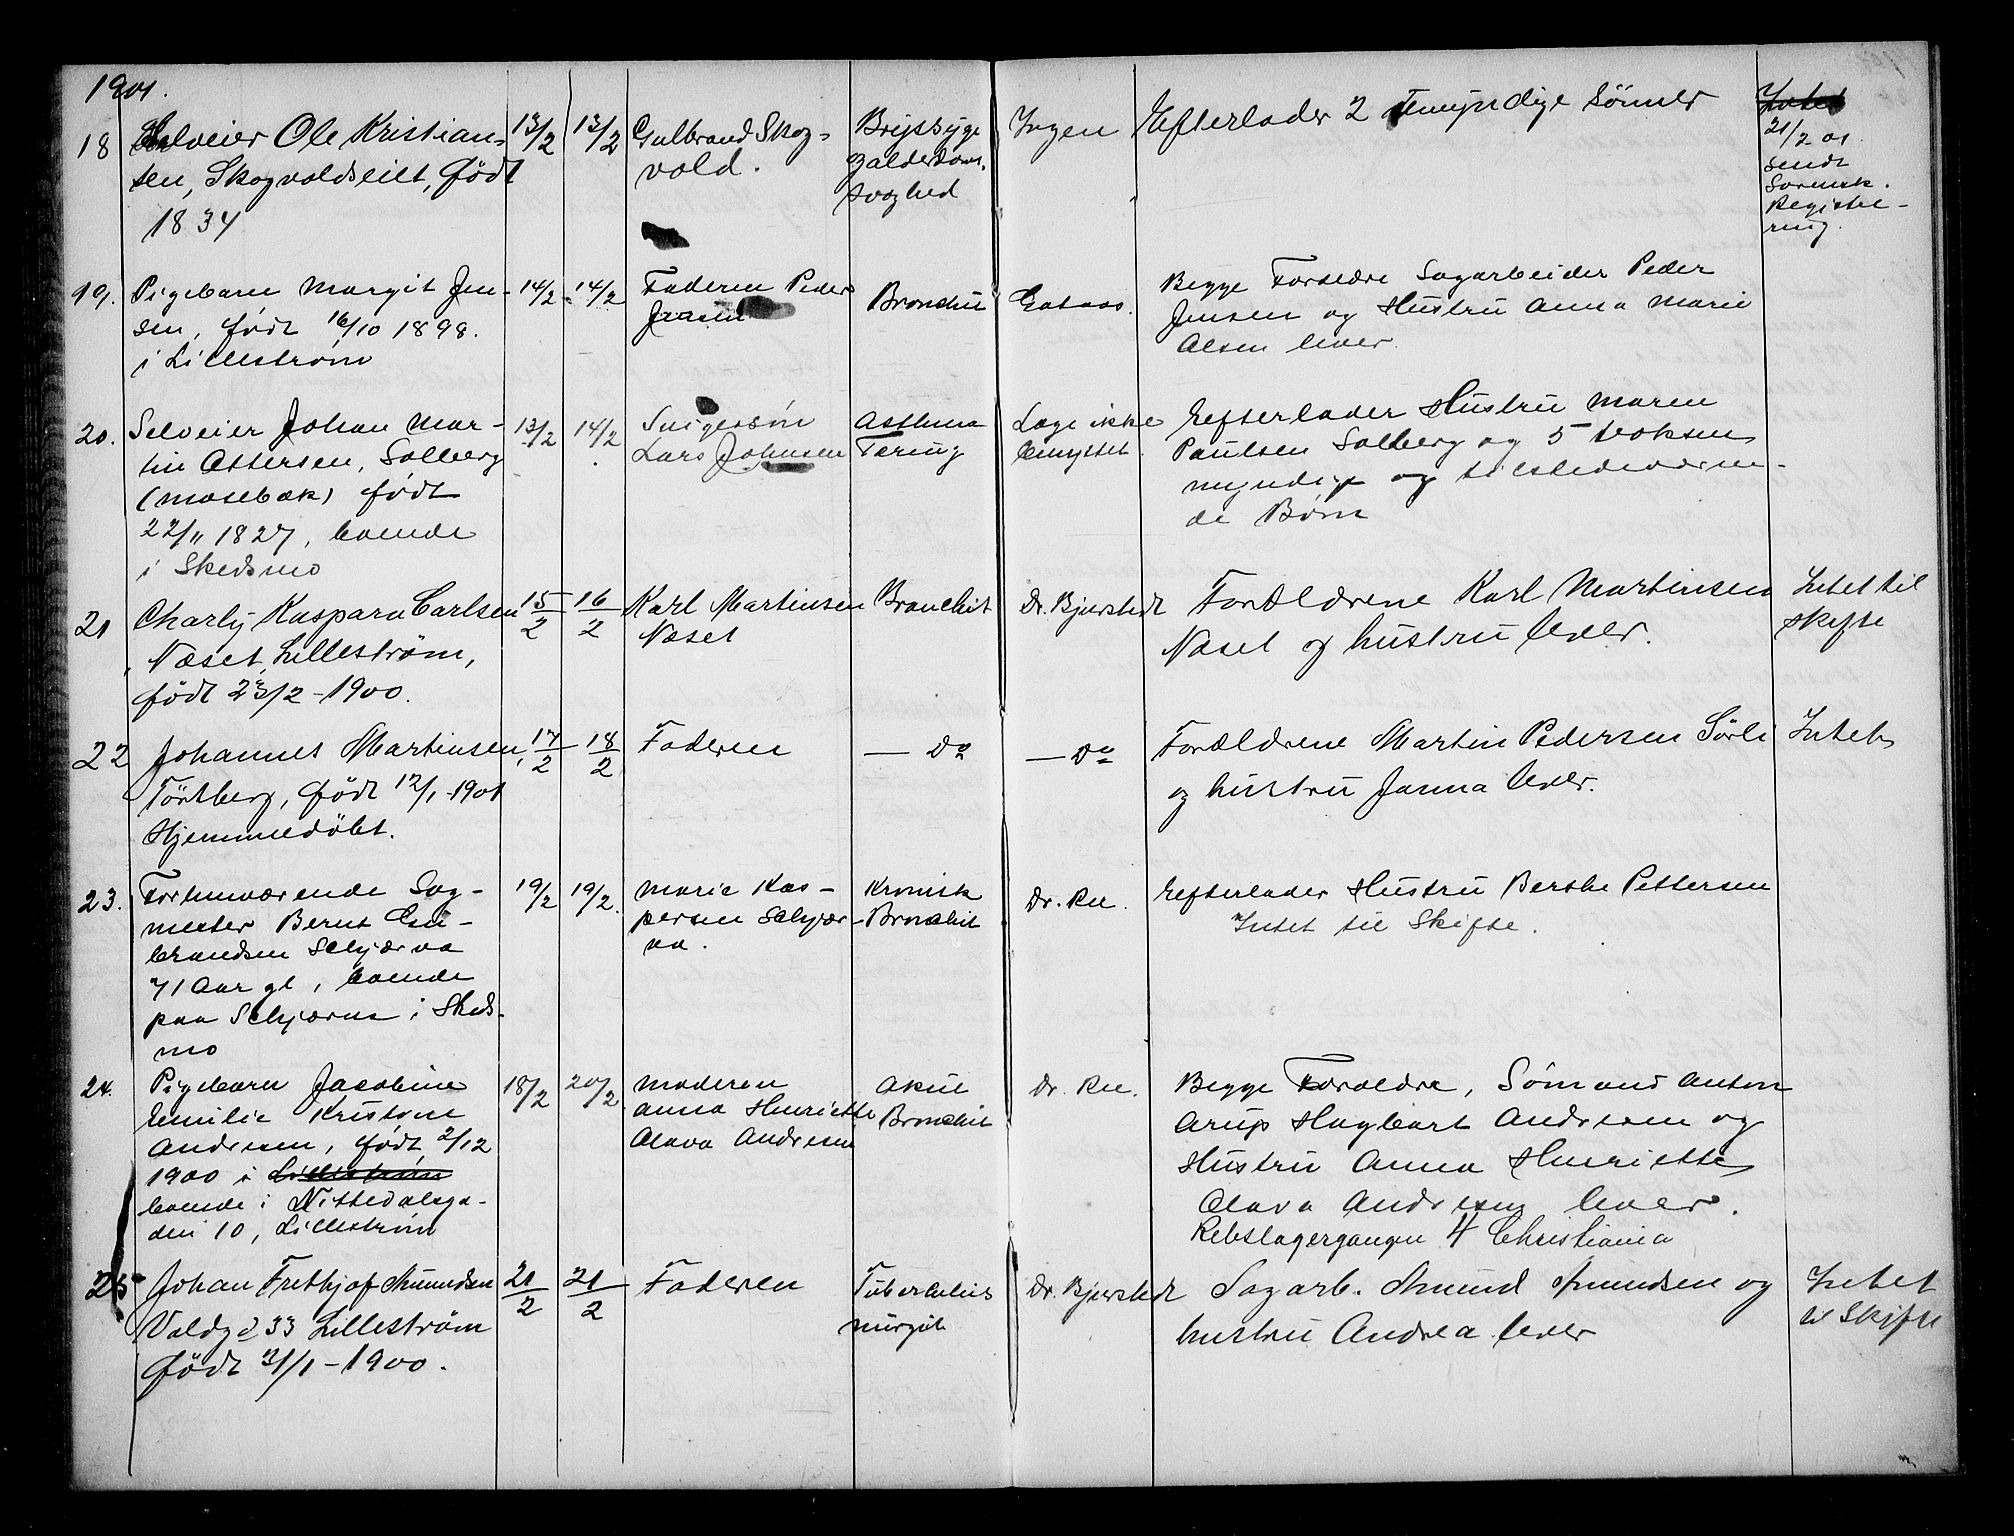 1901.
18 Selveier Ole Kristian-
sen, Skogvoldseilt, född
1834
13/2
13/2
Gulbrand Skog-
vold.
Brystsyge
alderdoms.
svaghed
Ingen
Efterlader 2 myndige Sönner
Intet
21/2 01.
sendt
Sorensk.
Registre-
ring.
19. Pigebarn Margit Jen-
sen, født 16/10 1898.
i Lillestrøm
14/2
14/2
Faderen Peder
Jensen
Bronchit
Gotaas.
Begge Forældre Sagarbeider Peder
Jensen og Hustru Anna Marie
Olsen lever
20. Selveier Johan Mar-
tin Ottersen, Solberg
(Mosebæk) født
22/11 1827, boende
i Skedsmo
13/2
14/2
Svigersøn
Lars Johnsen
Asthma
Tæring
Læge ikke
benyttet
Efterlader Hustru Maren
Paulsen Solberg og 5 voksne
myndige og tilstedeværen-
de Børn
21 Charly Kasparu Carlsen
Næset, Lillestrøm,
født 23/2 - 1900.
15/2
16/2
Karl Martinsen
Næset
Bronchit
Dr. Bjerstedt
Forældrene Karl Martinsen
Næset og hustru lever.
Intet til
skifte
22 Johannes Martinsen,
Törtberg, född 12/1 - 1901
Hjemmedöbt.
17/2
18/2
Faderen
— Do
— Do
Forældrene Martin Pedersen Sörli
og hustru Janna lever.
Intet
23. Forhenværende Sag-
mester Bernt Gul-
brandsen Schjærva
71 Aar gl, boende
paa Schjærva i Skeds-
mo
19/2
19/2.
Marie Kas-
persen Schjær-
va.
Kronisk
Bronchit
Dr. Ree.
Efterlader Hustru Berthe Pettersen
Intet til Skifte.
24. Pigebarn Jacobine
Emilie Kristine
Andresen, født 2/12
1900 i Lillestrøm
boende i Nittedalsga-
den 10, Lillestrøm
18/2
20/2
Moderen
Anna Henriette
Olava Andresen
Akut
Bronchit
Dr. Ree.
Begge Forældre, Sømand Anton
Arup Hagbart Andresen og
Hustru Anna Henriette
Olava Andresen lever.
Rebslagergangen 4 Christiania
25 Johan Frithjof Amundsen
Voldgd 33 Lillestrøm
född 21/1 - 1900.
21/2
21/2
Faderen
Tuberkuløs
Dr. Bjerstedt
Sagarb. Amund Amundsen og
hustru Andrea lever
Intet
til Skifte